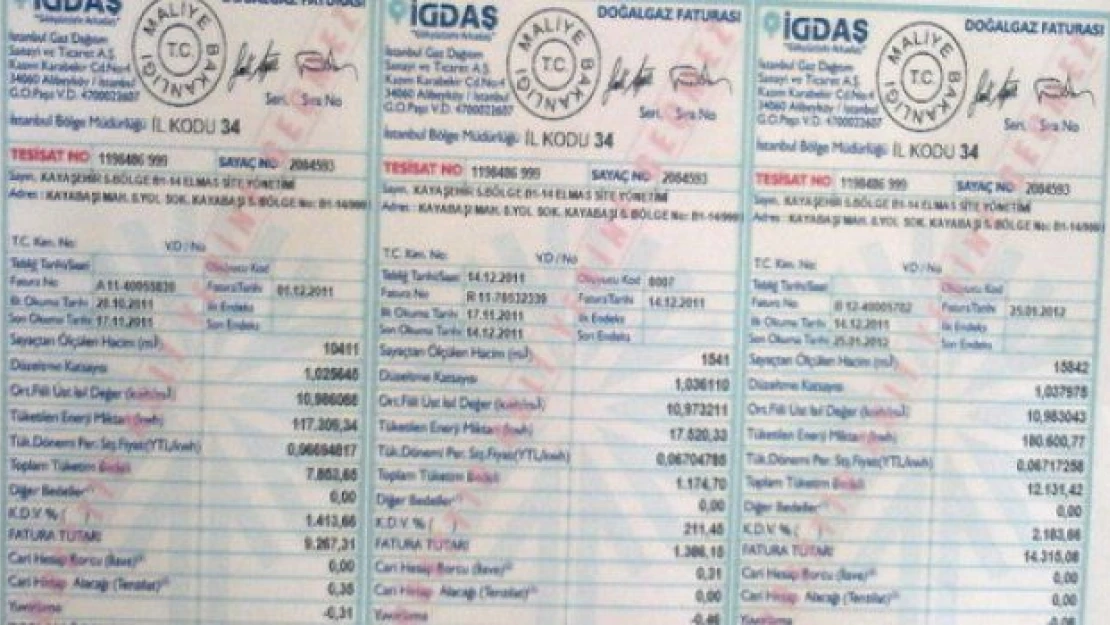 İGDAŞ
DOĞALGAZ FATURASI
İstanbul Gaz Dağıtım
Sanayi ve Ticaret A.Ş.
Kazım Karabekir Cd. No:4
34060 Alibeyköy / İstanbul
G.O.Paşa V.D. 4700022607
MALİYE BAKANLIĞI
T.C.
Seri, Sıra No
İstanbul Bölge Müdürlüğü İL KODU 34
TESİSAT NO 1198486 999 SAYAÇ NO 2084593
Sayın, KAYAŞEHİR 5.BÖLGE B1-14 ELMAS SİTE YÖNETİMİ
Adres : KAYABAŞI MAH. 8.YOL SOK. KAYABAŞI 5. BÖLGE No: B1-14/999
T.C. Kim. No: V.D/No
Tebliğ Tarihi/Saati Okuyucu Kod
Fatura No A 11-40055830 Fatura Tarihi 01.12.2011
İlk Okuma Tarihi 20.10.2011 İlk Endeks
Son Okuma Tarihi 17.11.2011 Son Endeks
Sayaçtan Ölçülen Hacim (m³) 10411
Düzeltme Katsayısı 1,025645
Ort.Fiili Üst Isıl Değer (kwh/m³) 10,986068
Tüketilen Enerji Miktarı (kwh) 117.309,34
Tük.Dönemi Per. Sış Fiyatı(YTL/kwh) 0,06694817
Toplam Tüketim Bedeli 7.853,65
Diğer Bedeller 0,00
K.D.V % ( ) 1.413,66
FATURA TUTARI 9.267,31
Cari Hesap Borcu (İlave) 0,00
Cari Hesap Alacağı (Tenzilat) 0,35
Yuvarlama -0,31
İGDAŞ
DOĞALGAZ FATURASI
İstanbul Gaz Dağıtım
Sanayi ve Ticaret A.Ş.
Kazım Karabekir Cd. No:4
34060 Alibeyköy / İstanbul
G.O.Paşa V.D. 4700022607
MALİYE BAKANLIĞI
T.C.
Seri, Sıra No
İstanbul Bölge Müdürlüğü İL KODU 34
TESİSAT NO 1198486 999 SAYAÇ NO 2084593
Sayın, KAYAŞEHİR 5.BÖLGE B1-14 ELMAS SİTE YÖNETİMİ
Adres : KAYABAŞI MAH. 8.YOL SOK. KAYABAŞI 5. BÖLGE No: B1-14/999
T.C. Kim. No: V.D/No
Tebliğ Tarihi/Saati 14.12.2011 Okuyucu Kod 8007
Fatura No R 11-78532339 Fatura Tarihi 14.12.2011
İlk Okuma Tarihi 17.11.2011 İlk Endeks
Son Okuma Tarihi 14.12.2011 Son Endeks
Sayaçtan Ölçülen Hacim (m³) 1541
Düzeltme Katsayısı 1,036110
Ort.Fiili Üst Isıl Değer (kwh/m³) 10,973211
Tüketilen Enerji Miktarı (kwh) 17.520,33
Tük.Dönemi Per. Sış Fiyatı(YTL/kwh) 0,06704785
Toplam Tüketim Bedeli 1.174,70
Diğer Bedeller 0,00
K.D.V % ( ) 211,45
FATURA TUTARI 1.386,15
Cari Hesap Borcu (İlave) 0,31
Cari Hesap Alacağı (Tenzilat) 0,00
Yuvarlama -0,46
İGDAŞ
DOĞALGAZ FATURASI
İstanbul Gaz Dağıtım
Sanayi ve Ticaret A.Ş.
Kazım Karabekir Cd. No:4
34060 Alibeyköy / İstanbul
G.O.Paşa V.D. 4700022607
MALİYE BAKANLIĞI
T.C.
Seri, Sıra No
İstanbul Bölge Müdürlüğü İL KODU 34
TESİSAT NO 1198486 999 SAYAÇ NO 2084593
Sayın, KAYAŞEHİR 5.BÖLGE B1-14 ELMAS SİTE YÖNETİMİ
Adres : KAYABAŞI MAH. 8.YOL SOK. KAYABAŞI 5. BÖLGE No: B1-14/999
T.C. Kim. No: V.D/No
Tebliğ Tarihi/Saati Okuyucu Kod
Fatura No R 12-40005702 Fatura Tarihi 25.01.2012
İlk Okuma Tarihi 14.12.2011 İlk Endeks
Son Okuma Tarihi 25.01.2012 Son Endeks
Sayaçtan Ölçülen Hacim (m³) 15842
Düzeltme Katsayısı 1,037978
Ort.Fiili Üst Isıl Değer (kwh/m³) 10,983043
Tüketilen Enerji Miktarı (kwh) 180.600,77
Tük.Dönemi Per. Sış Fiyatı(YTL/kwh) 0,06717258
Toplam Tüketim Bedeli 12.131,42
Diğer Bedeller 0,00
K.D.V % ( ) 2.183,66
FATURA TUTARI 14.315,08
Cari Hesap Borcu (İlave) 0,00
Cari Hesap Alacağı (Tenzilat) 0,00
Yuvarlama